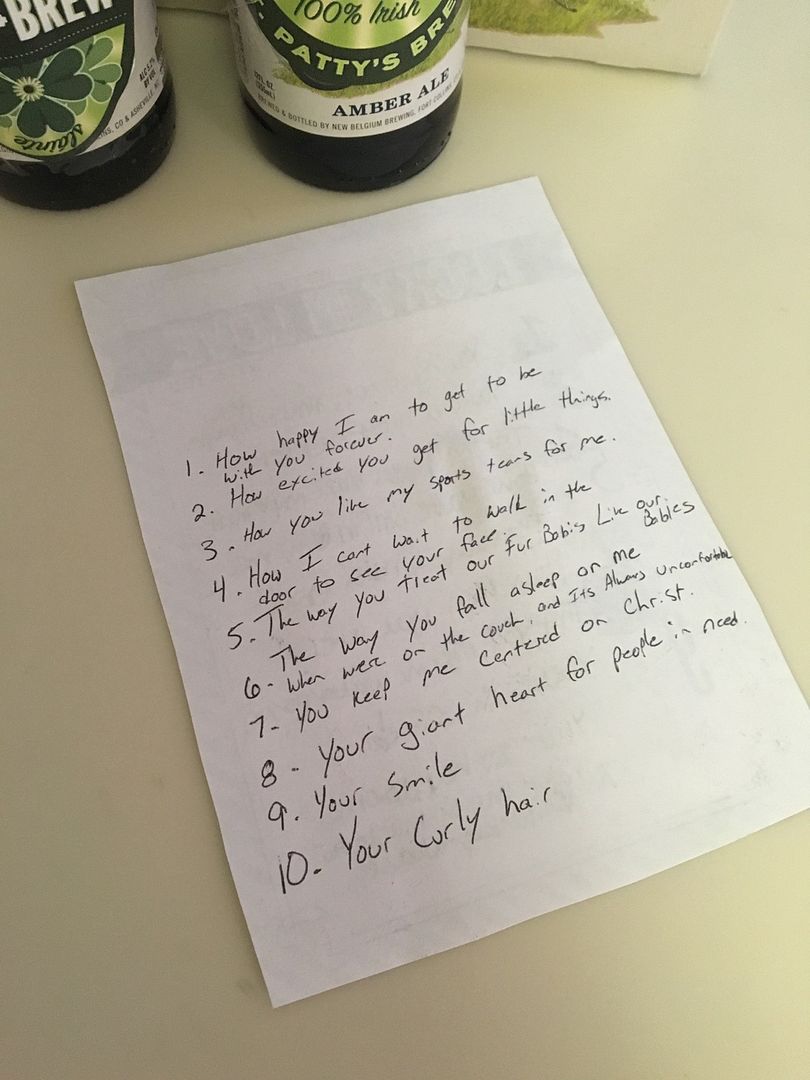 +BREW
ALC 5.2%
BY VOL
sláinte
INS, CO & ASHEVILLE, N
100% Irish
T. PATTY'S BRE
12 FL. OZ.
(355mL)
AMBER ALE
BREWED & BOTTLED BY NEW BELGIUM BREWING, FORT COLLINS, CO
1. How happy I am to get to be
with you forever.
2. How excited you get for little things.
3. How you like my sports teams for me.
4. How I cant wait to walk in the
door to see your face.
5. The way you treat our Fur Babis Like our
Babies
6- The way you fall asleep on me
when were on the couch, and Its Always Uncomfortable
7- You Keep me Centered on Christ.
8- Your giant heart for people in need.
9. Your Smile
10- Your Curly hair